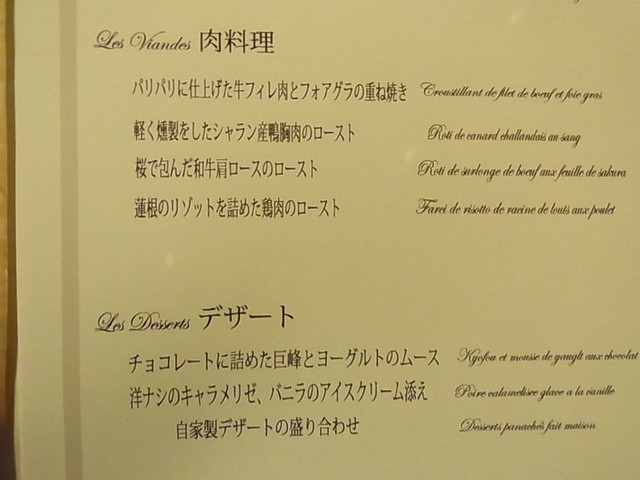 Les Viandes 肉料理
パリパリに仕上げた牛フィレ肉とフォアグラの重ね焼き Croustillant de filet de boeuf et foie gras
軽く燻製をしたシャラン産鴨胸肉のロースト Roti de canard challandais au sang
桜で包んだ和牛肩ロースのロースト Roti de surlonge de boeuf aux feuille de sakura
蓮根のリゾットを詰めた鶏肉のロースト Farci de risotto de racine de louts aux poulet
Les Desserts デザート
チョコレートに詰めた巨峰とヨーグルトのムース Kyofou et mousse de yaugli aux chocolat
洋ナシのキャラメリゼ、バニラのアイスクリーム添え Poire calamelisee glace a la vanille
自家製デザートの盛り合わせ Desserts panachés fait maison